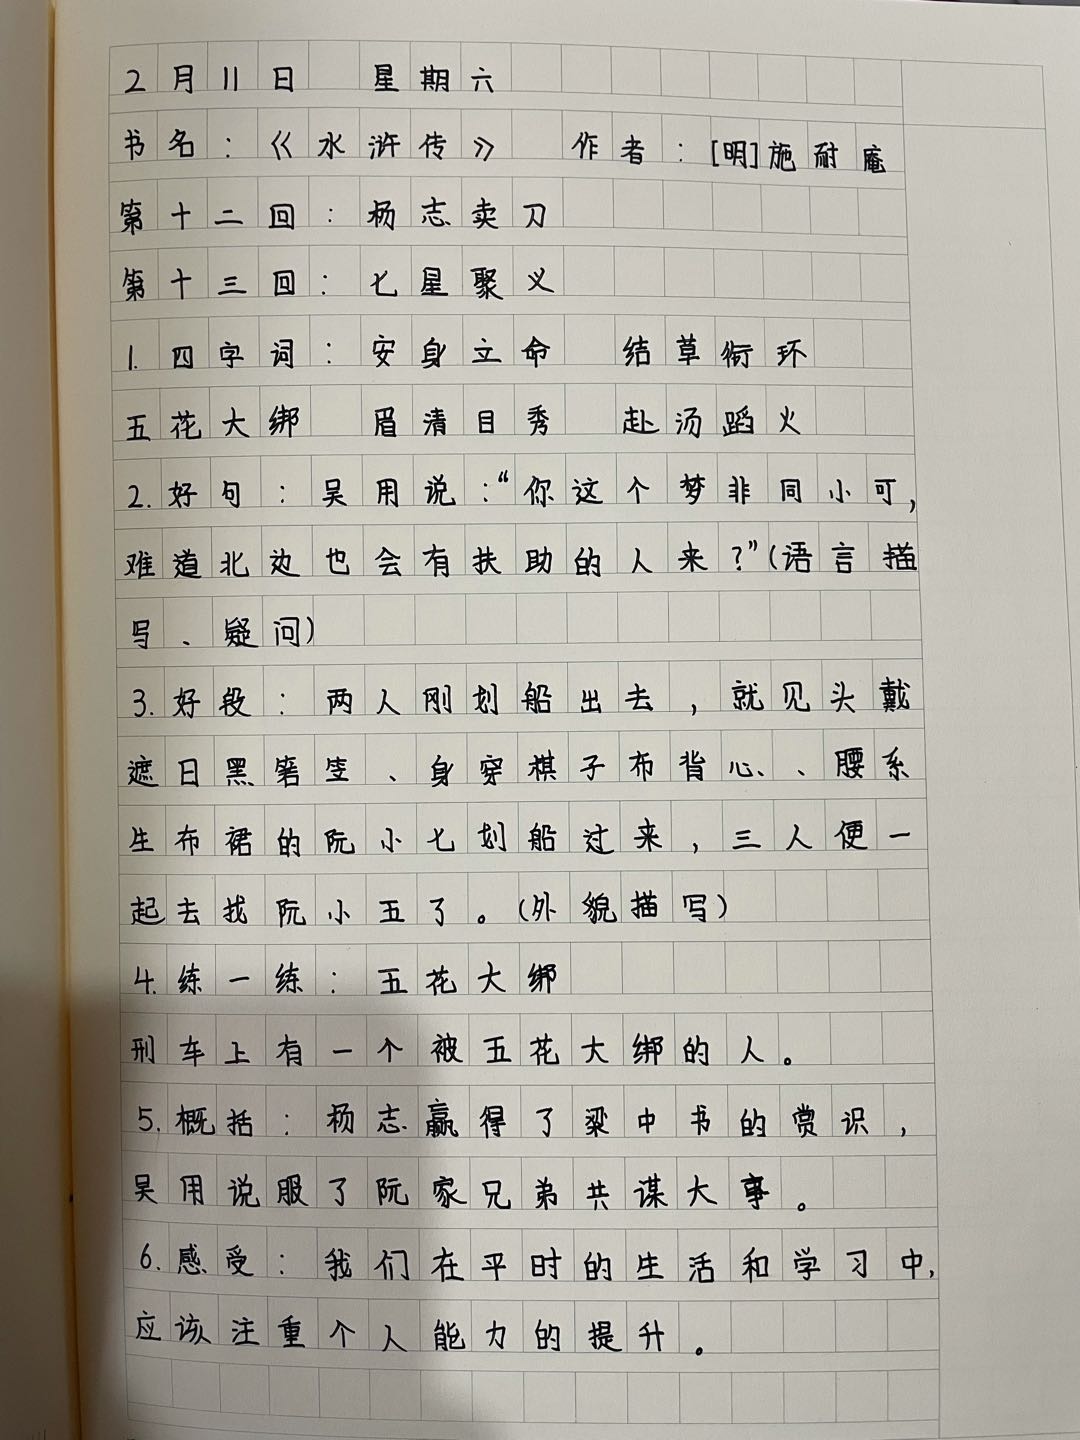 2月11日 星期六
书名：《水浒传》 作者：[明]施耐庵
第十二回：杨志卖刀
第十三回：七星聚义
1.四字词：安身立命 结草衔环
五花大绑 眉清目秀 赴汤蹈火
2.好句：吴用说：“你这个梦非同小可，
难道北边也会有扶助的人来？”（语言描
写、疑问）
3.好段：两人刚划船出去，就见头戴
遮日黑箬笠、身穿棋子布背心、、腰系
生布裙的阮小七划船过来，三人便一
起去找阮小五了。（外貌描写）
4.练一练：五花大绑
刑车上有一个被五花大绑的人。
5.概括：杨志赢得了梁中书的赏识，
吴用说服了阮家兄弟共谋大事。
6.感受：我们在平时的生活和学习中，
应该注重个人能力的提升。